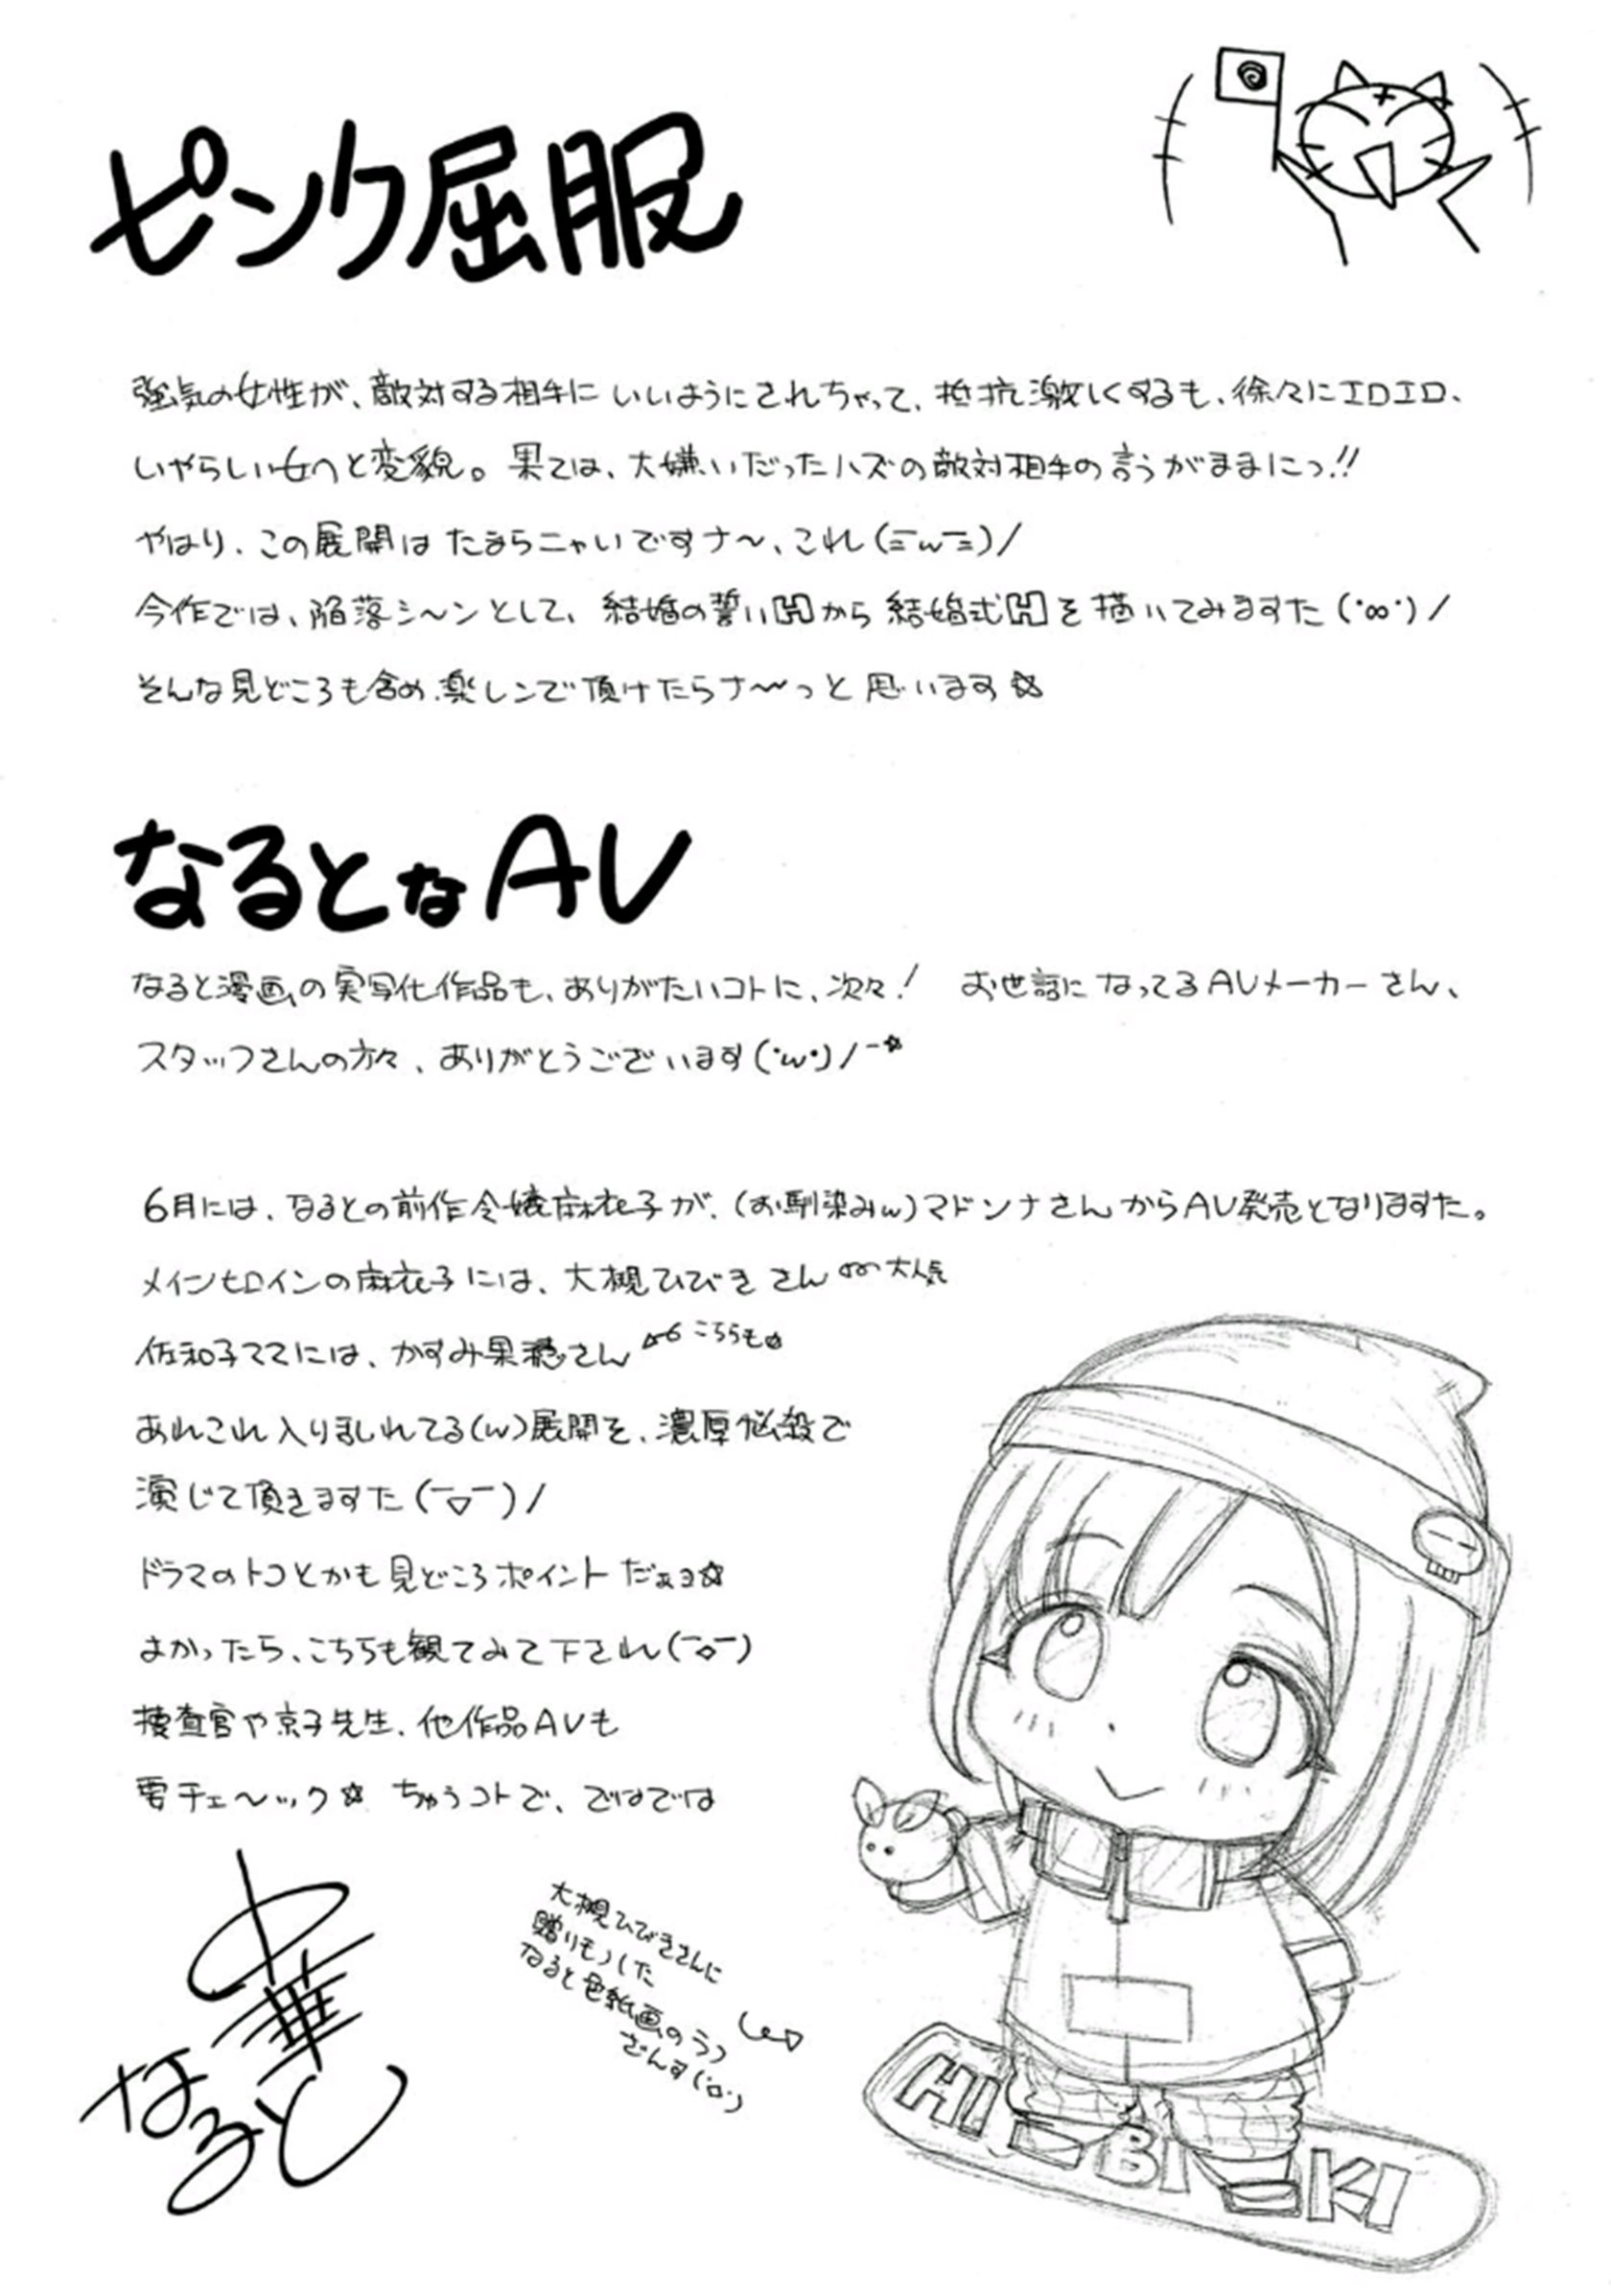 ピンク屈服
強気の女性が、敵対する相手にいいようにされちゃって、抵抗激しくするも、徐々にエロエロ、
いやらしい女へと変貌。果ては、大嫌いだったハズの敵対相手の言うがままにっ!!
やはり、この展開はたまらニャいですナ〜、これ(≡ω≡)/
今作では、陥落シ〜ンとして、結婚の誓いHから結婚式Hを描いてみますた(・∞・)/
そんな見どころも含め、楽しンで頂けたらナ〜っと思います☆
なるとなAV
なると漫画の実写化作品も、ありがたいコトに、次々! お世話になってるAVメーカーさん、
スタッフさんの方々、ありがとうございます(・ω・)/-☆
6月には、なるとの前作令嬢麻衣子が、(お馴染みw)マドンナさんからAV発売となりますた。
メインヒロインの麻衣子には、大槻ひびきさん 大人気
佐和子ママには、かすみ果穂さん こちらも☆
あれこれ入りまじれてる(w)展開を、濃厚悩殺で
演じて頂きますた(￣▽￣)/
ドラマのトコとかも見どころポイントだぁョ☆
よかったら、こちらも観てみて下され(￣◇￣)
捜査官や京子先生、他作品AVも
要チェ〜ック☆ ちゅうコトで、ではでは
中華
なると
大槻ひびきさんに
贈りモノした
なると色紙画のラフ
ざんす(・ロ・)
HIBIKI